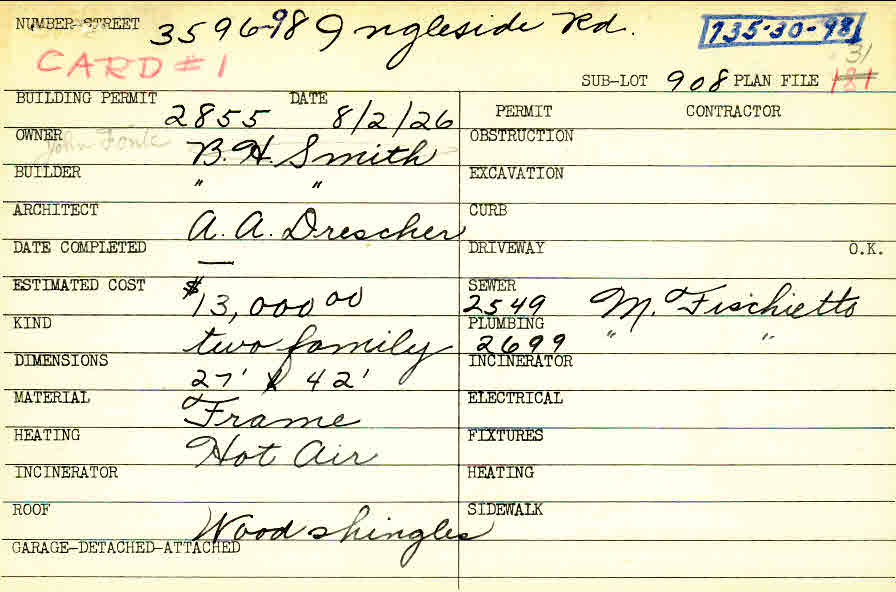 NUMBER-STREET 3596-98 Ingleside Rd. 735-30-98
CARD #1 31
SUB-LOT 908 PLAN FILE 181
BUILDING PERMIT 2855 DATE 8/2/26 PERMIT CONTRACTOR
OWNER John B. H. Smith OBSTRUCTION
BUILDER " " EXCAVATION
ARCHITECT A. A. Drescher CURB
DATE COMPLETED — DRIVEWAY O.K.
ESTIMATED COST $13,000 00 SEWER 2549 M. Fischietto
KIND two family PLUMBING 2699 " "
DIMENSIONS 27' X 42' INCINERATOR
MATERIAL Frame ELECTRICAL
HEATING Hot Air FIXTURES
INCINERATOR HEATING
ROOF Wood shingles SIDEWALK
GARAGE-DETACHED-ATTACHED